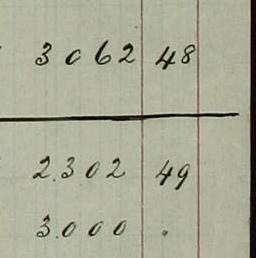 3062 48
2.302 49
3.000 .